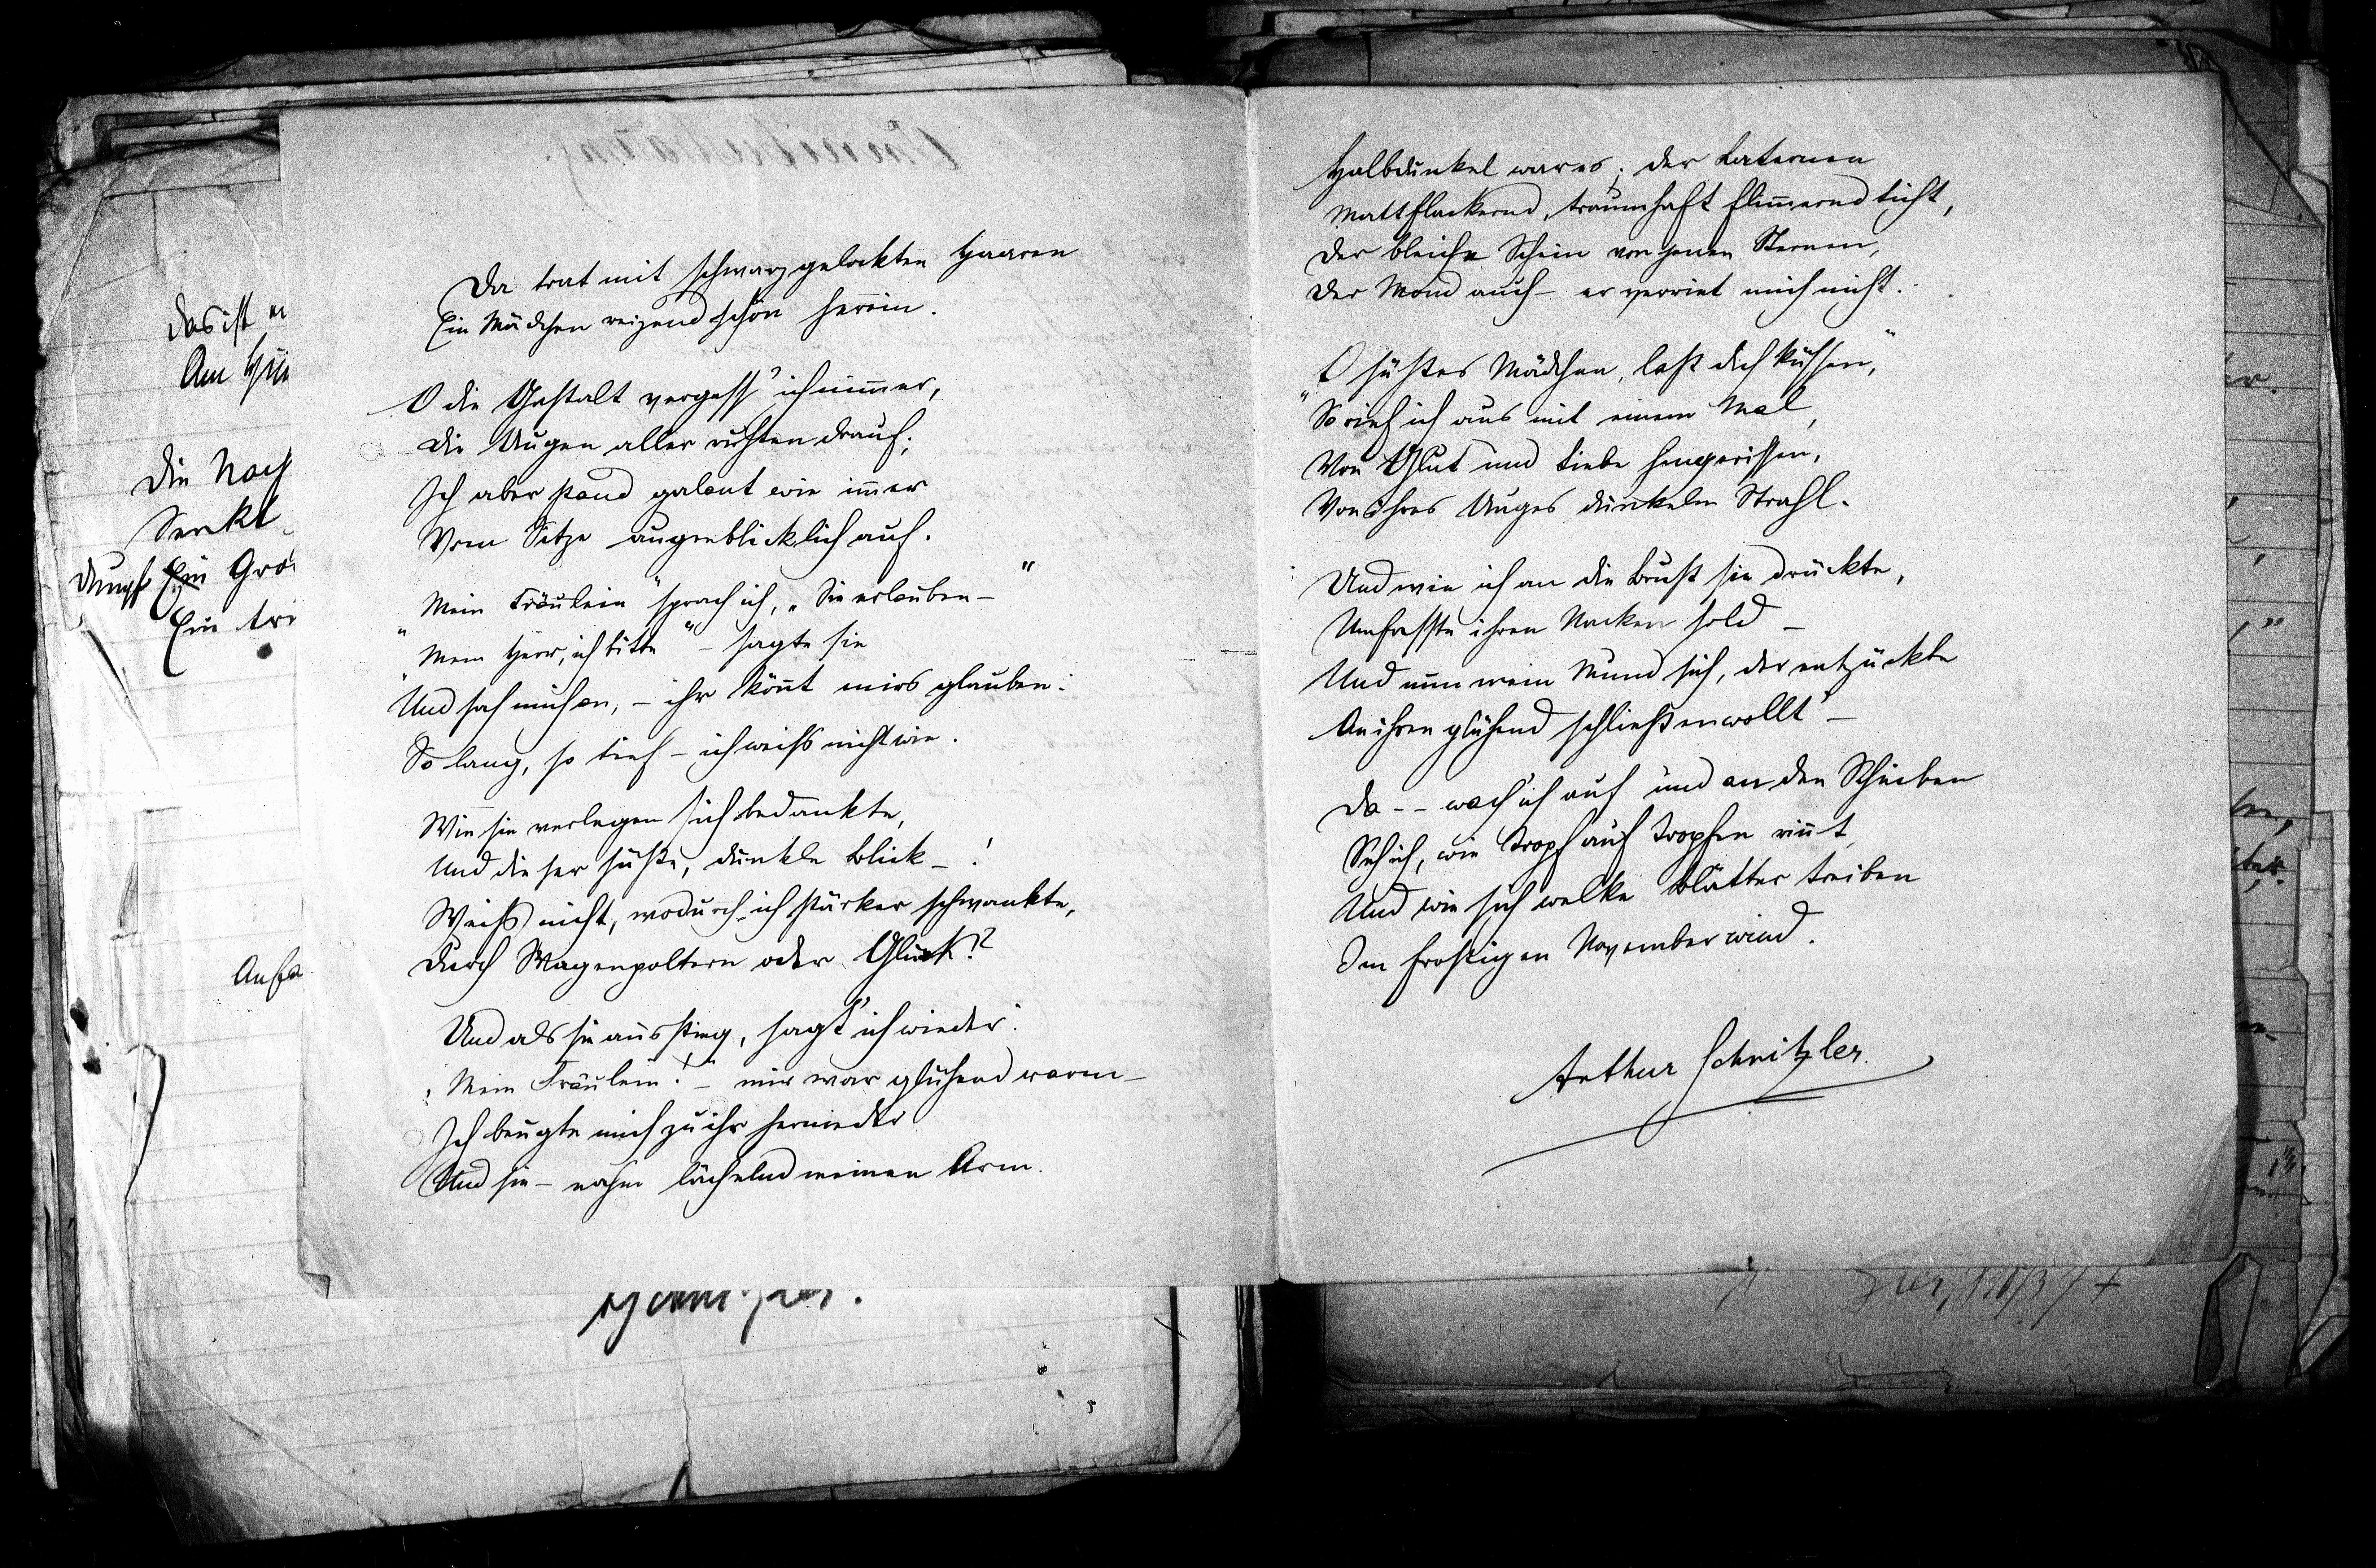 Da trat mit schwarzgelockten Haaren
Ein Mädchen reizend schön herein.
O die Gestalt vergess' ich nimmer,
Die Augen aller ruhten drauf;
Ich aber stand galant wie immer
Vom Sitze augenblicklich auf.
Mein Fräulein" sprach ich, „Sie erlauben –"
"Mein Herr, ich bitte" – sagte sie
Und sah mich an, – ihr könnt mirs glauben:
So lang, so tief – ich weiß nicht wie.
Wie sie verlegen sich bedankte,
Und dieser süße, dunkle Blick – !
Weiß nicht, wodurch ich stärker schwankte,
Durch Wagenpoltern oder Glück!?
Und als sie ausstieg, sagt' ich wieder:
„Mein Fräulein!" – mir war glühend warm –
Ich beugte mich zu ihr hernieder
Und sie – nahm lächelnd meinen Arm.
Halbdunkel war es; der Laternen
Mattflackernd, traumhaft flimmernd Licht,
Der bleiche Schein von jenen Sternen,
Der Mond auch – er verriet mich nicht.
"O süßes Mädchen, laß dich küssen,"
So rief ich aus mit einem Mal,
Von Glut und Liebe hingerissen,
Von ihres Auges dunkelm Strahl.
Und wie ich an die Brust sie drückte,
Umfasste ihren Nacken hold –
Und nun mein Mund sich, der entzückte
An ihren glühend schließen wollt' –
Da -- wach' ich auf und an den Scheiben
Seh ich, wie Tropf auf Tropfen rinnt,
Und wie sich welke Blätter treiben
Im frostigen Novemberwind.
Arthur Schnitzler.
Das ist
Am
Die
Senkt
Dumpf Ein
Ein